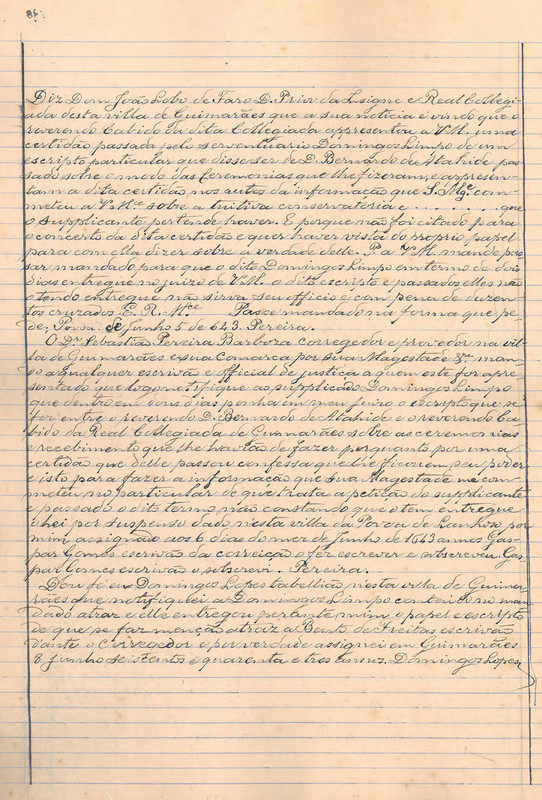 Diz Dom João Lobo de Faro D. Prior da Insigne e Real Collegi-
ada desta villa de Guimarães que a sua noticia é vindo que o
reverendo Cabido da dita Collegiada appresentou a V.M. uma
certidão passada pelo serventuario Domingos Limpo de um
escripto particular que disse ser de D. Bernardo de Atahide pas-
sado sobre o modo das Ceremonias que lhe fizeram, e appresen-
tam a dita certidão nos autos da informação que S. Mge. com-
meteu a V. Mce sobre a tuitiva conservatoria e . . . . . . . . que
o supplicante pertende haver. E porque não foi citado para
o concerto da dita certidão e quer haver vista do proprio papel
para com ella dizer sobre a verdade delle. P. a V. M. mande pas-
sar mandado para que o dito Domingos Limpo em termo de dois
dias entregue no juizo de V. M. o dito escripto e passados elles não
o tendo entregue não sirva seu officio e com pena de duzen-
tos cruzados. E. R. Mce Passe mandado na forma que pe-
de. Povoa. de Junho 5 de 643. Pereira.
O Dr. Sebastião Pereira Barboza corregedor e provedor na vil-
la de Guimarães e sua Comarca por sua Magestade &r. man-
do a qualquer escrivão e official de justiça a quem este for apre-
sentado que logo notifique ao supplicado Domingos Limpo
que dentro em dous dias ponha em meu juizo o escripto que se
fez entre o reverendo D. Bernardo de Atahide e o reverendo Ca-
bido da Real Collegiada de Guimarães sobre as ceremonias
e recebimento que lhe havião de fazer porquanto por uma
certidão que delle passou confessa que lhe ficou em seu poder
e isto para fazer a informação que sua Magestade me com-
meteu no particular de que trata a petição do supplicante
e passado o dito termo não constando que o tem entregue
o hei por suspenso dado nesta villa da Povoa de Lanhoso por
mim assignado aos 6 dias do mez de Junho de 1643 annos Gas-
par Gomes escrivão da correição o fez escrever e subscreveu. Gas-
par Gomes escrivão o subscrevi. Pereira.
Dou fé eu Domingos Lopes tabellião nesta villa de Guima-
rães que notifiquei a Domingos Limpo conteudo no man-
dado atraz e elle entregou perante mim o papel e escripto
de que se faz menção atraz a Bento de Freitas escrivão
d'ante o Corregedor e por verdade assignei em Guimarães
8 Junho seis centos e quarenta e tres annos. Domingos Lopes